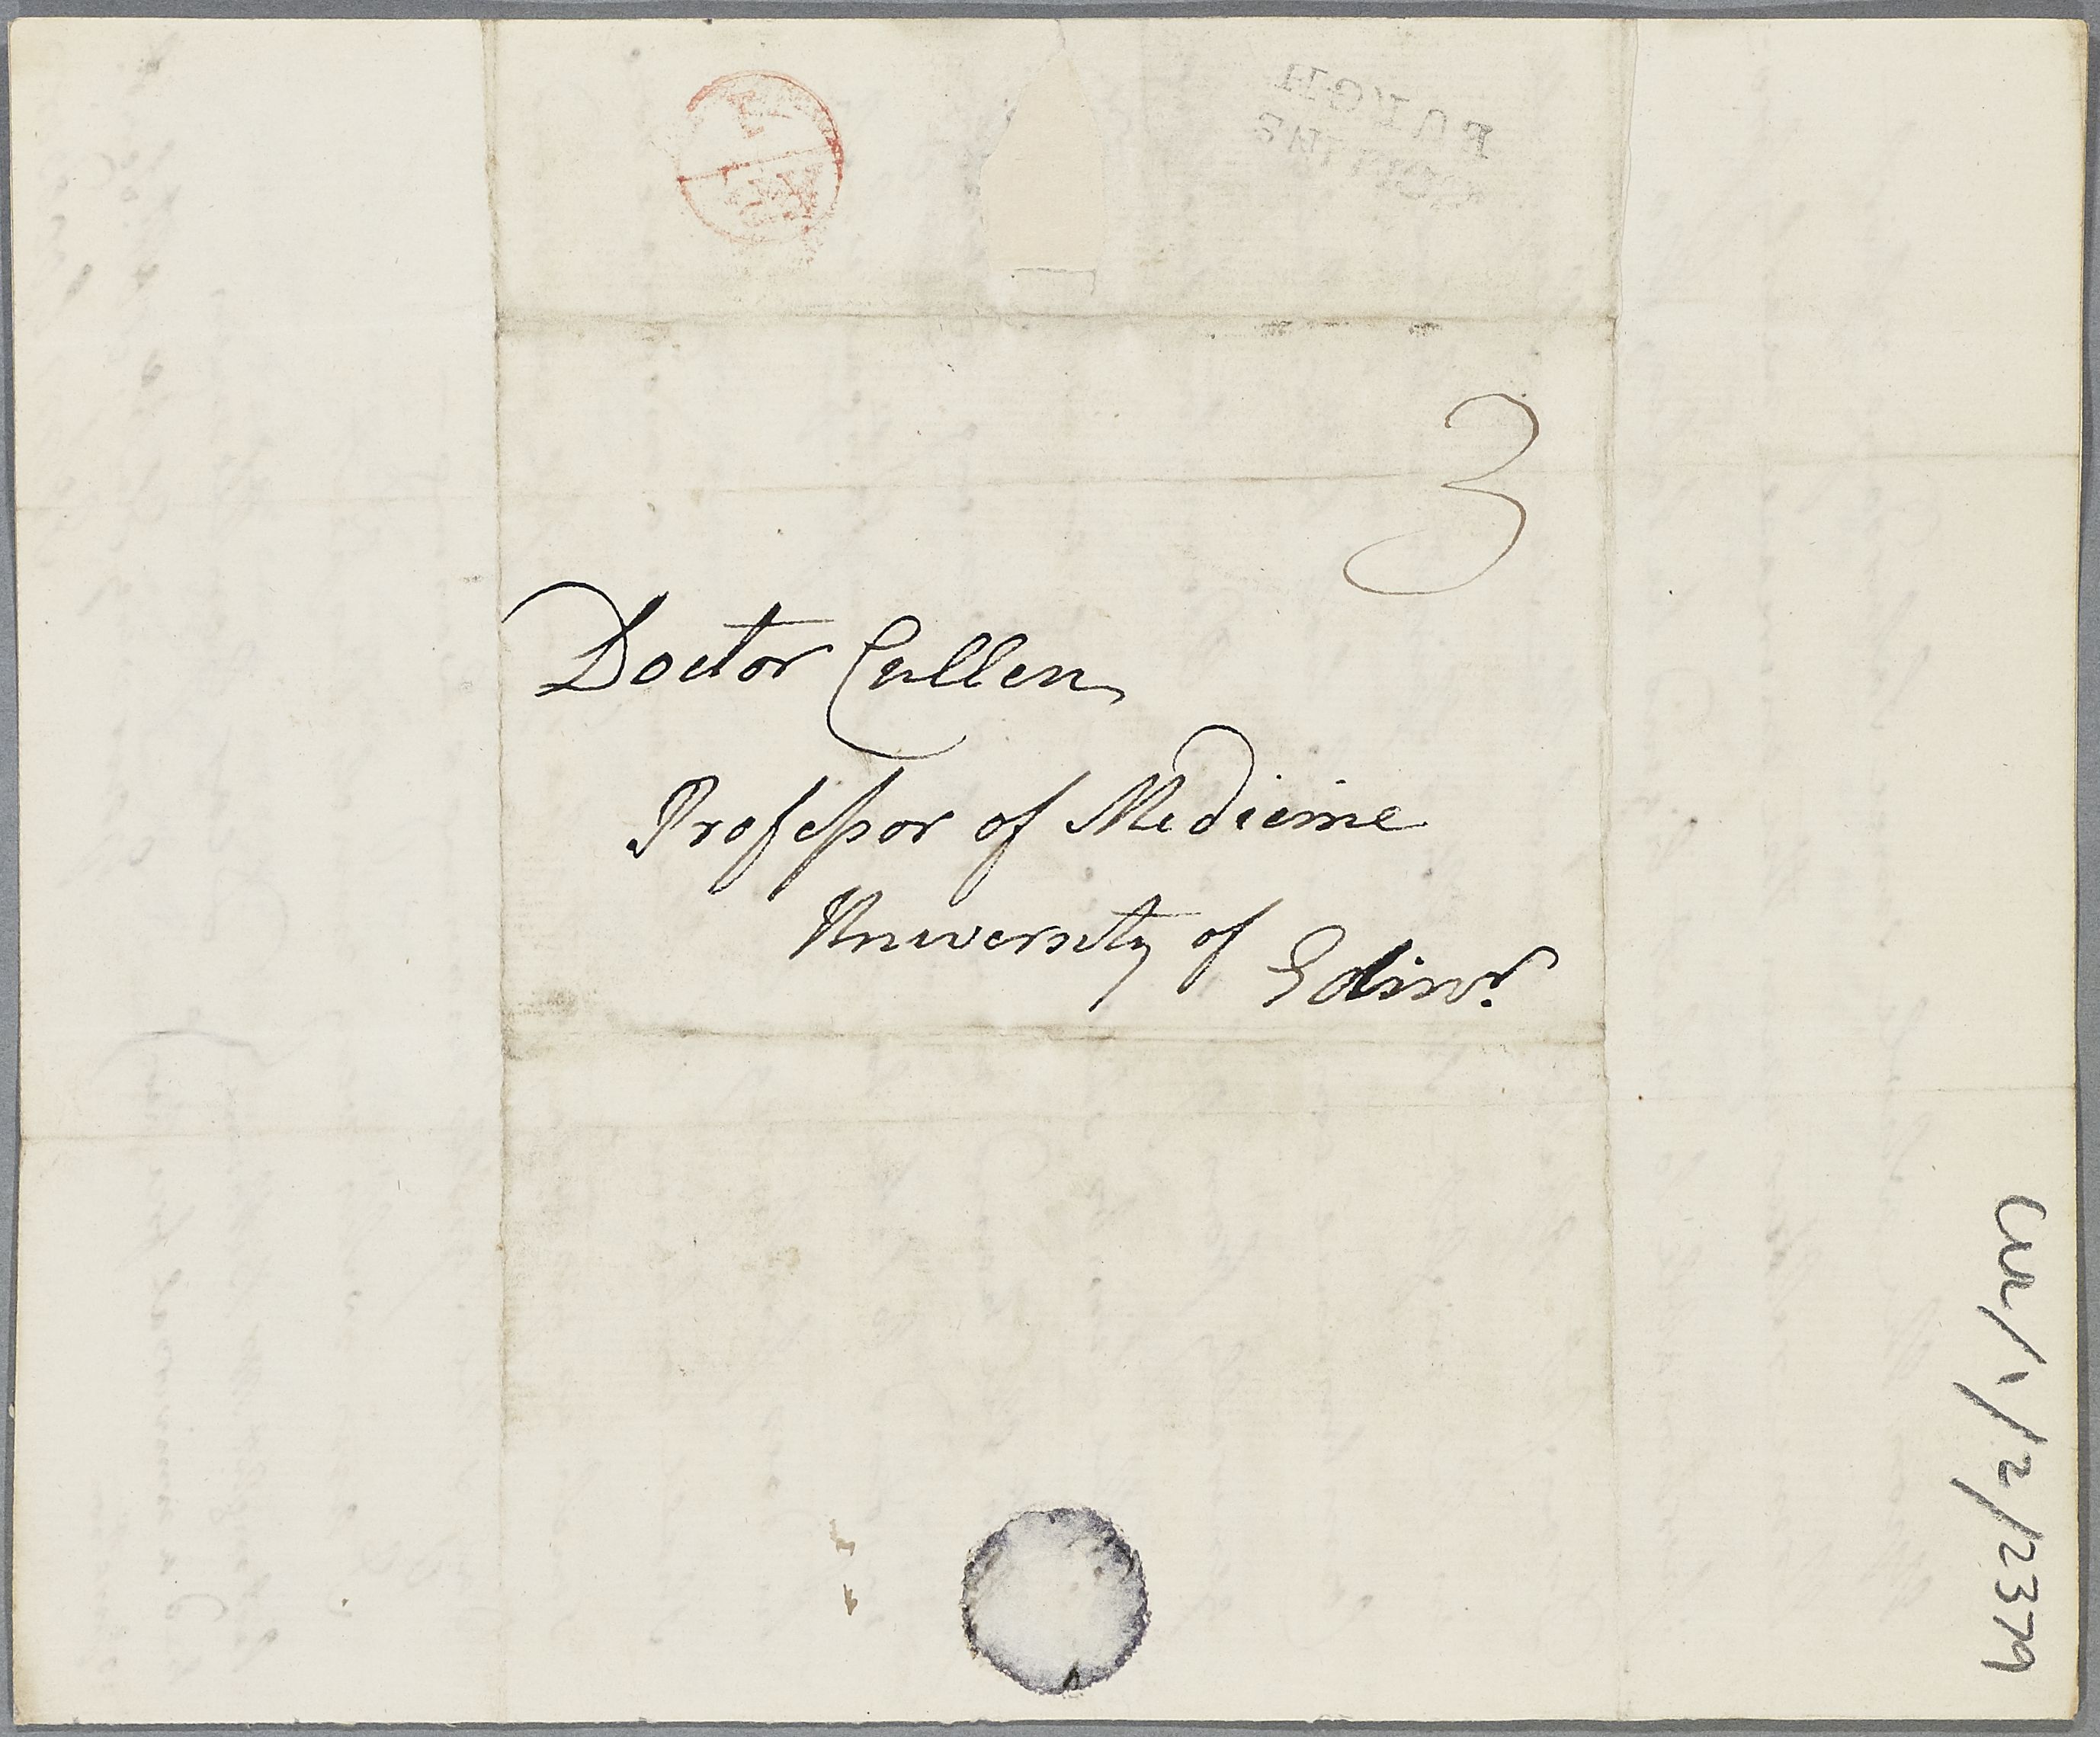 3
Doctor Cullen
Professor of Medicine
University of Edinr.
CUL/1/2/2379